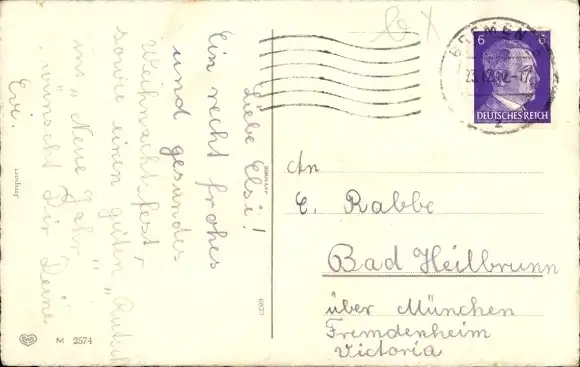 Liebe Elsi!
Ein recht frohes
und gesundes
Weihnachtsfest,
sowie einen guten „Rutsch
ins „Neue Jahr"
wünscht Dir Deine
Evi.
M 2574
6 6
DEUTSCHES REICH
BREMEN
2
An
E. Rabbe
Bad Heilbrunn
über München
Fremdenheim
Victoria